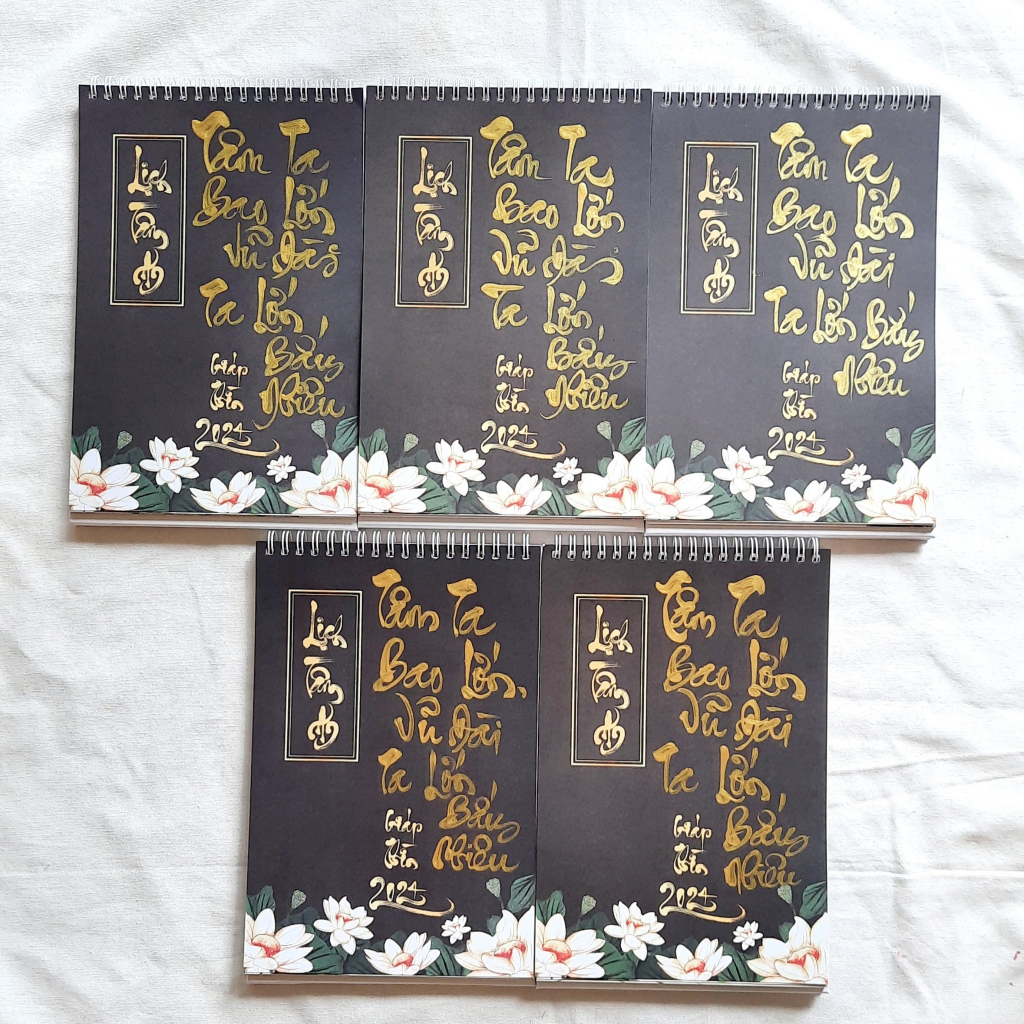 Lịch
Tâm Ta
Bao Lớn
Vũ Đài
Ta Lớn
Bấy
Nhiêu
Giáp
Thìn
2024
Lịch
Tâm Ta
Bao Lớn
Vũ Đài
Ta Lớn
Bấy
Nhiêu
Giáp
Thìn
2024
Lịch
Tâm Ta
Bao Lớn
Vũ Đài
Ta Lớn Bấy
Nhiêu
Giáp
Thìn
2024
Lịch
Tâm Ta
Bao Lớn,
Vũ Đài
Ta Lớn
Bấy
Nhiêu
Giáp
Thìn
2024
Lịch
Tâm Ta
Bao Lớn
Vũ Đài
Ta Lớn
Bấy
Nhiêu
Giáp
Thìn
2024